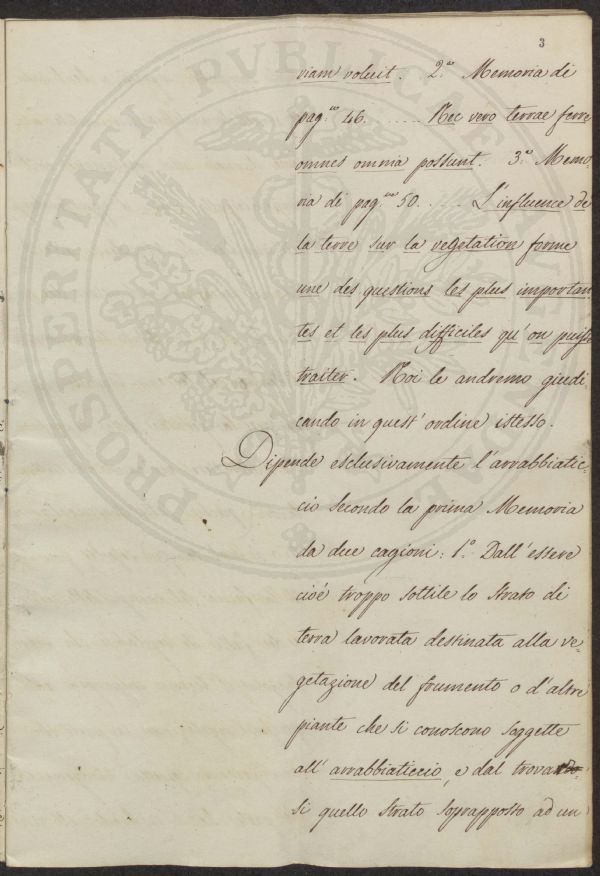 3
viam voluit. 2.ᵃ Memoria di
pag.ᵐᵉ 46. ..... Nec vero terrae ferre
omnes omnia possunt. 3.ᵃ Memo-
ria di pag.ᵐᵉ 50. .... L'influence de
la terre sur la vegetation forme
une des questions les plus importan
tes et les plus difficiles qu'on puisse
traiter. Noi le andremo giudi
cando in quest'ordine istesso.
Dipende esclusivamente l'arrabbiatic-
cio secondo la prima Memoria
da due cagioni: 1.° Dall'essere
cioè troppo sottile lo Strato di
terra lavorata destinata alla ve-
getazione del frumento o d'altre
piante che si conoscono soggette
all'arrabbiaticcio, e dal trovar
si quello Strato soprapposto ad un
PROSPERITATI PVBLICAE